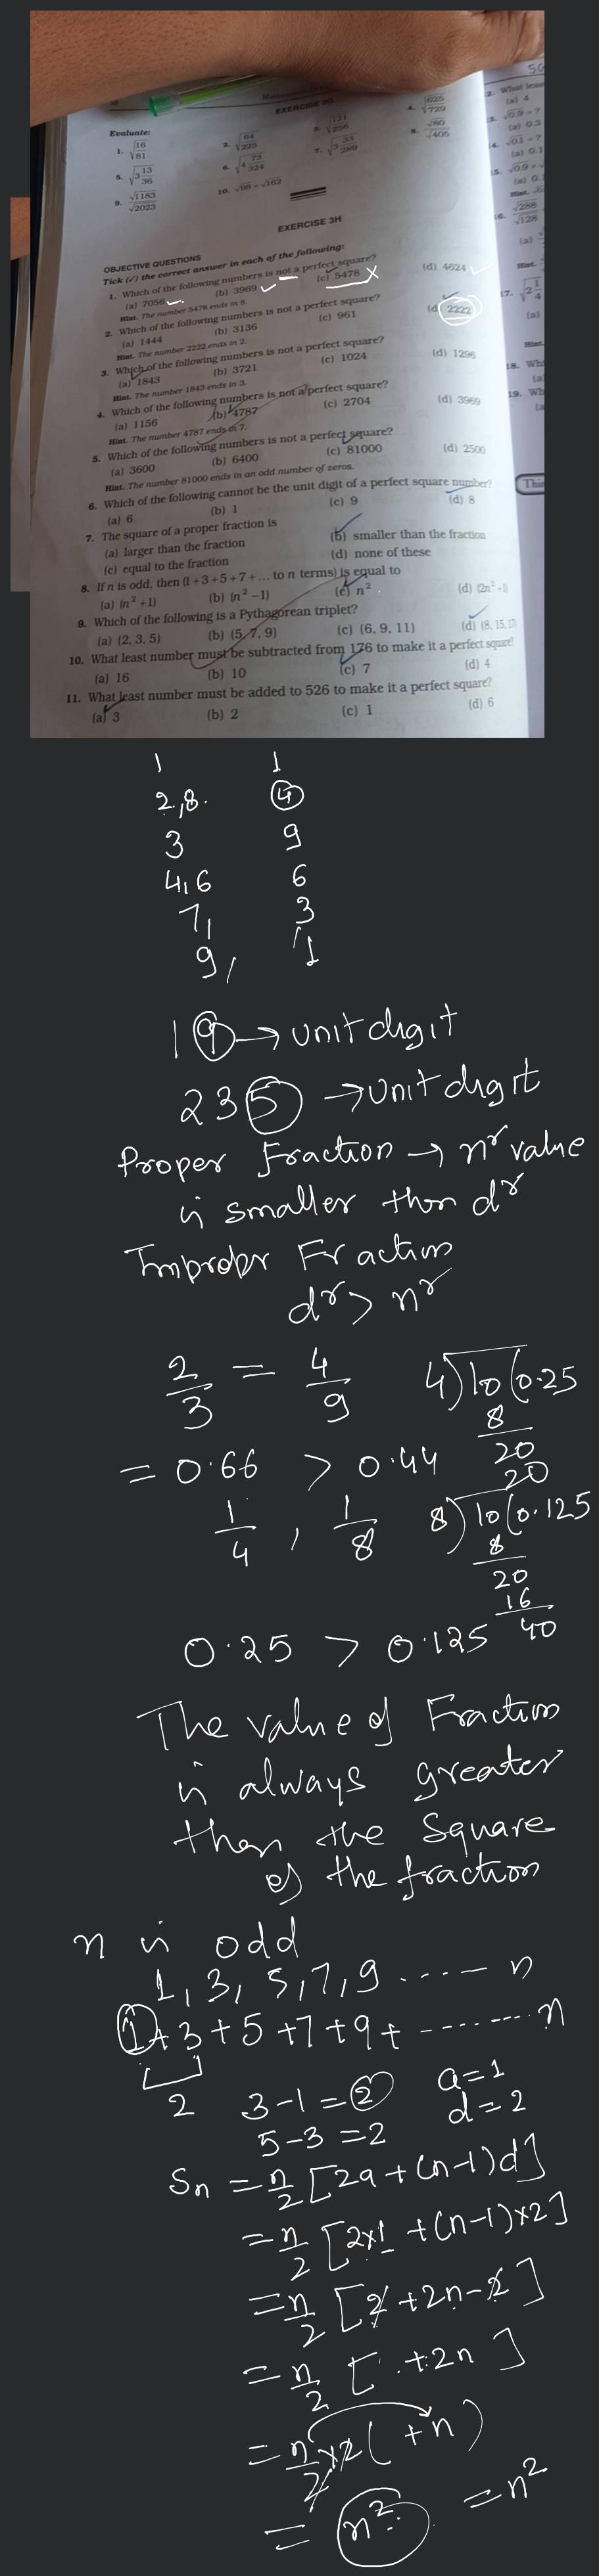 EXERCISE 3G
Evaluate:
1. √16/81
2. √64/225
3. √121/256
4. √625/729
5. √3 13/36
6. √4 73/324
7. √3 33/289
8. √80/√405
9. √1183/√2023
10. √98 × √162
EXERCISE 3H
OBJECTIVE QUESTIONS
Tick (✓) the correct answer in each of the following:
1. Which of the following numbers is not a perfect square?
(a) 7056 (b) 3969 (c) 5478 (d) 4624
Hint. The number 5478 ends in 8.
2. Which of the following numbers is not a perfect square?
(a) 1444 (b) 3136 (c) 961 (d) 2222
Hint. The number 2222 ends in 2.
3. Which of the following numbers is not a perfect square?
(a) 1843 (b) 3721 (c) 1024 (d) 1296
Hint. The number 1843 ends in 3.
4. Which of the following numbers is not a perfect square?
(a) 1156 (b) 4787 (c) 2704 (d) 3969
Hint. The number 4787 ends in 7.
5. Which of the following numbers is not a perfect square?
(a) 3600 (b) 6400 (c) 81000 (d) 2500
Hint. The number 81000 ends in an odd number of zeros.
6. Which of the following cannot be the unit digit of a perfect square number?
(a) 6 (b) 1 (c) 9 (d) 8
7. The square of a proper fraction is
(a) larger than the fraction (b) smaller than the fraction
(c) equal to the fraction (d) none of these
8. If n is odd, then (1+3+5+7+... to n terms) is equal to
(a) (n² +1) (b) (n² −1) (c) n² (d) (2n² +1)
9. Which of the following is a Pythagorean triplet?
(a) (2, 3, 5) (b) (5, 7, 9) (c) (6, 9, 11) (d) (8, 15, 17
10. What least number must be subtracted from 176 to make it a perfect square?
(a) 16 (b) 10 (c) 7 (d) 4
11. What least number must be added to 526 to make it a perfect square?
(a) 3 (b) 2 (c) 1 (d) 6
1 1
2,8. 4
3 9
4,6 6
7, 3
9, 1
19 → unit digit
235 → unit digit
Proper Fraction → nr value
is smaller than dr
Improper Fraction
dr > nr
2/3 = 4/9 4)10(0.25
8
20
20
= 0.66 > 0.44
1/4 , 1/8 8)10(0.125
8
20
16
40
0.25 > 0.125
The value of Fraction
is always greater
than the Square
of the fraction
n is odd
1, 3, 5, 7, 9 ----- n
1+3+5+7+9+ -------- n
2 3-1=2 a=1
5-3=2 d=2
Sn = n/2 [2a+(n-1)d]
= n/2 [2×1 +(n-1)×2]
= n/2 [2 +2n-2]
= n/2 [ +2n ]
= n/2×2( +n)
= n² = n²